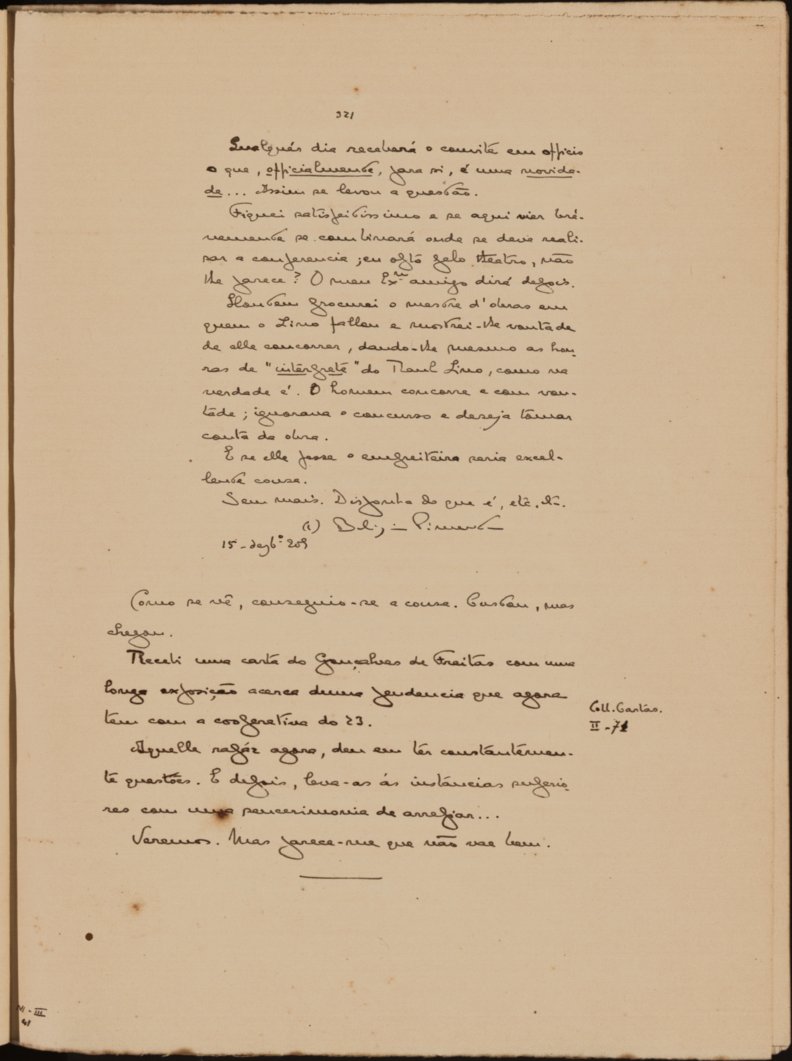 321
Qualquér dia receberá o convite em officio
o que, officialmente, para si, é uma novida-
de... Assim se levou a questão.
Fiquei satisfeitissimo e se aqui vier bré-
vemente se combinará onde se deve reali-
sar a conferencia; eu opto pelo theatro, não
lhe parece? O meu Exmo amigo dirá depois.
Hontem procurei o mestre d'obras em
quem o Lino fallou e mostrei-lhe vontade
de elle concorrer, dando-lhe mesmo as hon-
ras de "intérprete" do Raul Lino, como na
verdade é. O homem concorre e com von-
tade; ignorava o concurso e deseja tômar
conta da obra.
E se elle fosse o empreiteiro seria excel-
lente cousa.
Sem mais. Disponha do que é, etc. etc.
(a) Belis. Pimenta
15-dezbº 909
Como se vê, conseguio-se a cousa. Custou, mas
chegou.
Recebi uma carta do Gonçalves de Freitas com uma
longa exposição acerca duma pendencia que agora
tem com a cooperativa do 23.
Coll. Cartas.
II-71
Aquelle rapáz agora, deu em têr constantêmen-
te questões. E depois, leva-as ás instâncias superio-
res com uma sencerimonia de arrepiar...
Veremos. Mas parece-me que não vae bem.
VI-III
41